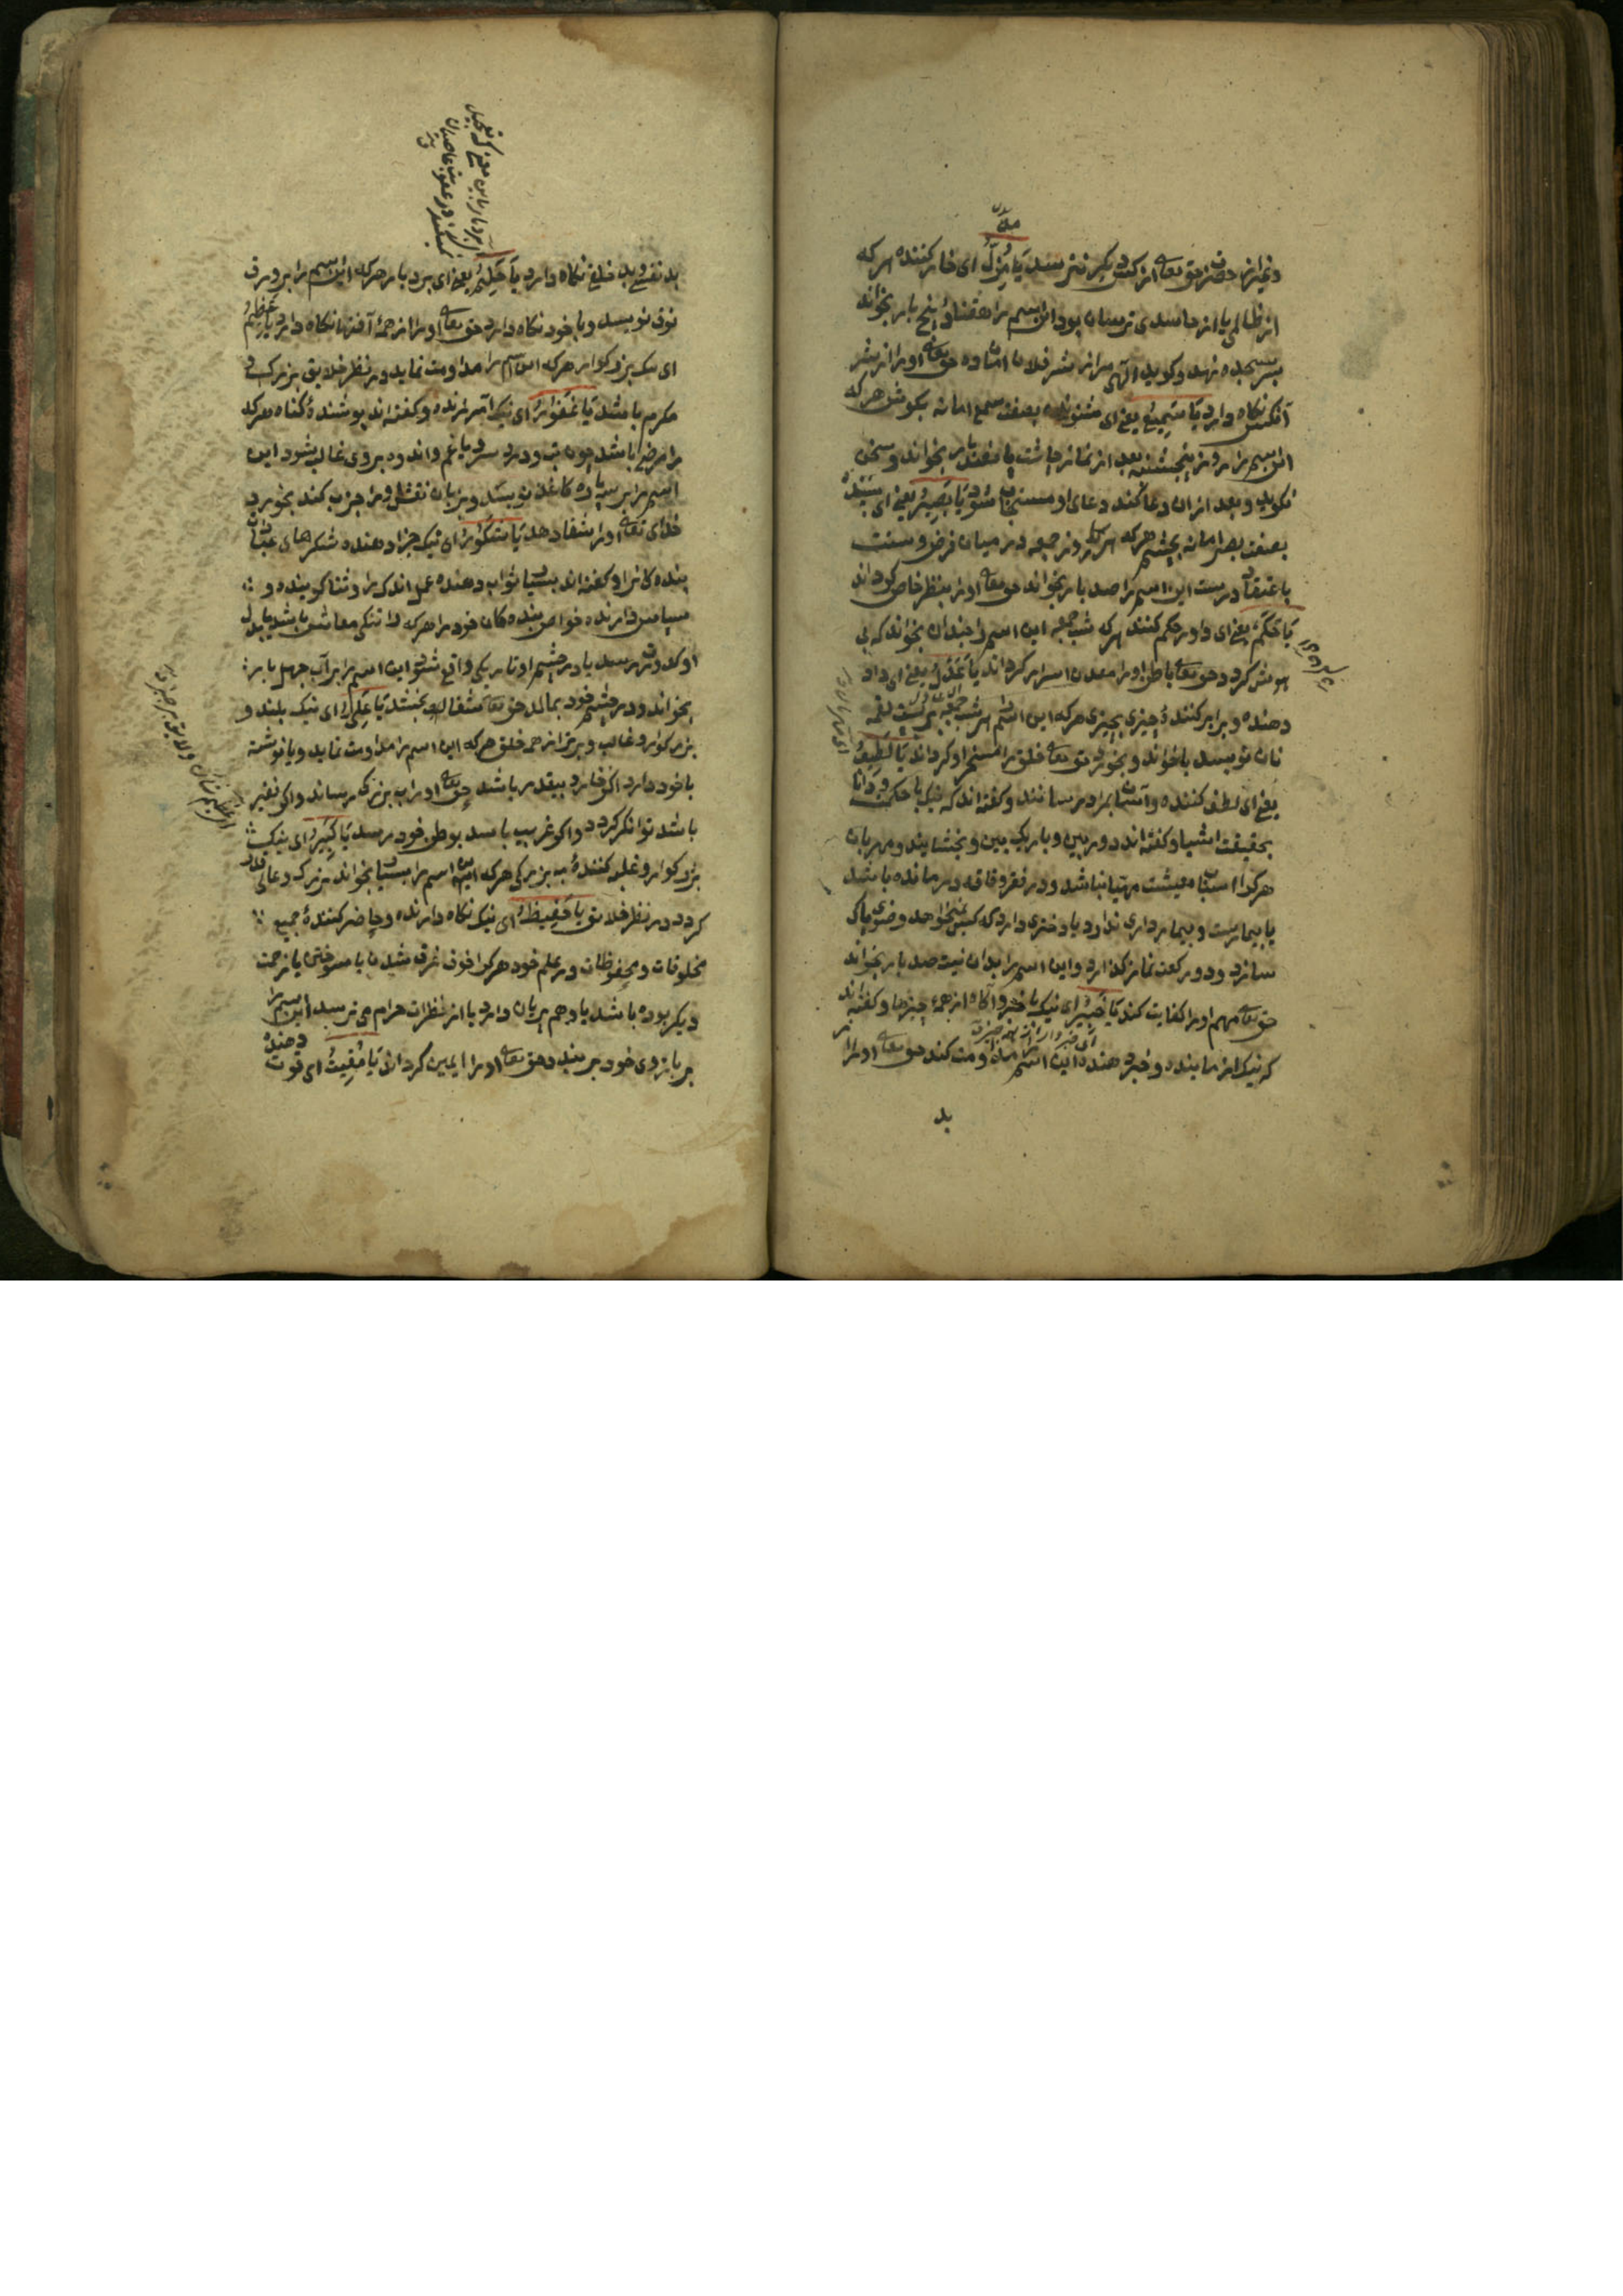 مذل
و نیاز از حضرت حق تعالی از کسی دیگر نترسد یَا مُذِلُّ ای خار کننده هر که
از ظالمی یا از حاسدی ترسان بود این اسم را هفتاد و پنج بار بخواند
سر بسجده نهد و کوید الهی مرا از شر فلان امان ده حق تعالی او را از شر
آنکس نکاه دارد یَا سَمِیعُ یعنی ای شنونده بصفت سمع اما نه بکوش هر که
این اسم را روز پنجشنبه بعد از نماز چاشت پانصد بار بخواند و سخن
نکوید و بعد از ان دعا کند دعای او مستجاب شود یَا بَصِیرُ یعنی ای بیننده
بصفت بصر اما نه بچشم هر که هر روز جمعه در میان فرض و سنت
باعتقاد درست این اسم را صد بار بخواند حق تعالی او را بنظر خاص کرداند
یَا حَکَمُ یعنی ای داور حکم کننده هر که شب جمعه این اسم را چندان بخواند که بی
هوش کردد حق تعالی باطن او را معدن اسرار کرداند یَا عَدْلُ یعنی ای داد
دهنده و برابر کننده چیزی بچیزی هر که این اسم هر شب جمعه بر بیست لقمه
نان نویسد یا خواند و بخورد حق تعالی خلق را مسخر او کرداند یَا لَطِیفُ
یعنی ای لطف کننده و آسان بمراد رسانند و کفته اند که نیک با حکمت و دانا
بحقیقت اشیا و کفته اند دوربین و باریک بین و بخشایند و مهربان
هر کرا اسباب معیشت مهیا نباشد و در فقر و فاقه درمانده باشد
یا بیمارست و بیمار داری ندارد یا دختری دارد که کسی نمیخواهد وضوی پاک
سازد و دو رکعت نماز کذارد و این اسم را بدان نیت صد بار بخواند
حق تعالی مهم او را کفایت کند یَا خَبِیرُ ای نیک با خبر و آکاه از همه چیزها و کفته اند
که نیک آزماینده و خبر دهنده این اسم مداومت کند حق تعالی او را از
بد
بد نفسی و بد خلقی نکاه دارد یَا حَلِیمُ یعنی ای بردبار هر که این اسم را بر ورق
نویسد و با خود نکاه دارد حق تعالی او را از همه آفتها نکاه دارد یَا عَظِیمُ
ای نیک بزرکوار هر که این اسم را مداومت نماید در نظر خلایق بزرک و
مکرم باشد یَا غَفُورُ ای نیک آمرزنده و کفته اند پوشنده کناه هر که
را مرضی باشد چون تب و درد سر یا غم و اندوه بر وی غالب شود این
اسم را بر سه پاره کاغذ نویسد و بنان نقش او را جذب کند بخورد
خدای تعالی او را شفا دهد یَا شَکُورُ ای نیک جزا دهنده شکرهای
بنده کانرا و کفته اند بسیار ثواب دهنده عمل اندک را و ثنا کوینده و
سپاس دارنده خواص بنده کان خود را هر که را تنکی معاش باشد یا بدل
او کدورت رسد یا در چشم او تاریکی واقع شود این اسم را بر آب چهل بار
بخواند و در چشم خود بمالد حق تعالی شفا بخشد یَا عَلِیُّ ای نیک بلند و
بزرکوار و غالب و برتر از همه خلق هر که این اسم را مداومت نماید و یا نوشته
با خود دارد اکر خار و بیقدر باشد حق تعالی او را بزرکی رساند و اکر فقیر
باشد توانکر کردد و اکر غریب باشد بوطن خود رسد یَا کَبِیرُ ای نیک
بزرکوار و غلبه کننده به بزرکی هر که این اسم را بسیار بخواند بزرک و عالی قدر
کردد در نظر خلایق یَا حَفِیظُ ای نیک نکاه دارنده و حاضر کننده جمیع
مخلوقات و محفوظات در علم خود هر کرا خوف غرق شدن یا سوختن یا زحمت
دیکر بوده باشد یا وهم پریان دارد یا از نظرات حرام می ترسد این اسم را
بر بازوی خود بر بندد حق تعالی او را ایمن کرداند یَا مُقِیتُ ای قوت دهنده